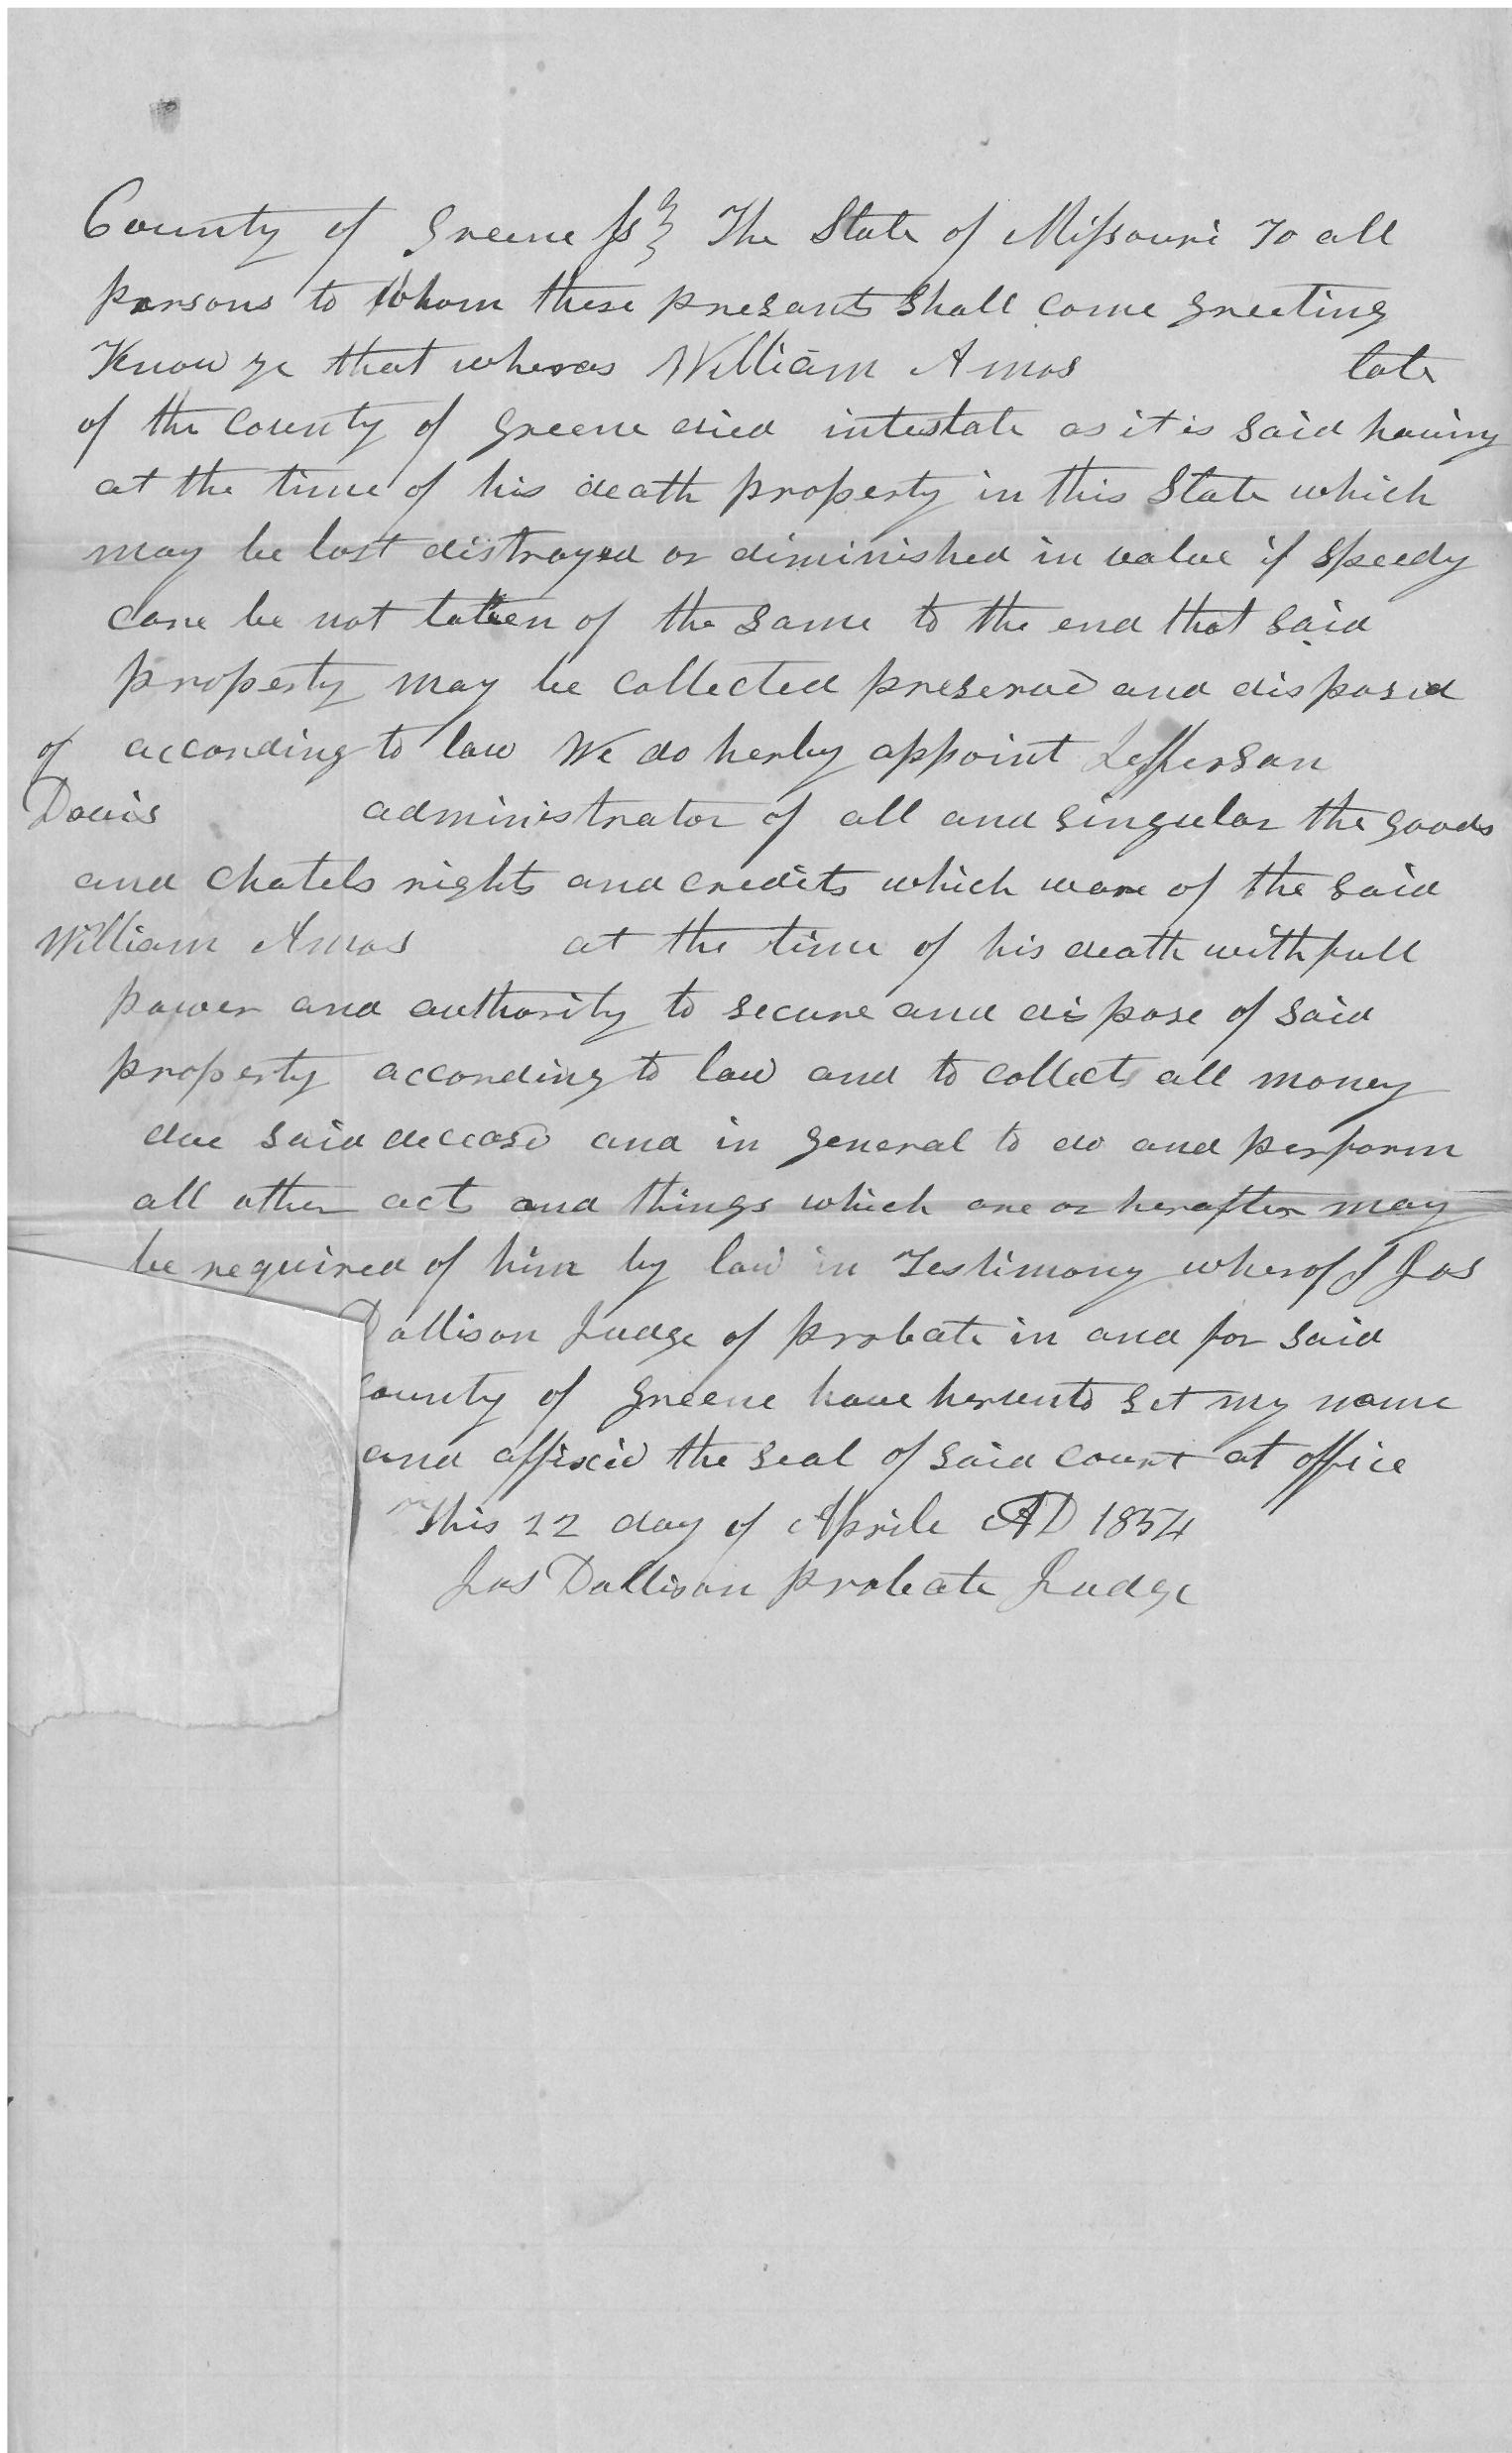 County of Greene ss} The State of Missouri To all
persons to whom these presants shall come greeting
Know ye that wheras William Amos late
of the County of Greene died intestate as it is said having
at the time of his death property in this State which
may be lost distroyed or diminished in value if speedy
care be not taken of the same to the end that said
property may be collected preserved and disposed
of according to law We do herby appoint Jefferson
Davis administrator of all and singular the goods
and chatels rights and credits which ware of the said
William Amos at the time of his death with full
power and authority to secure and dispose of said
property according to law and to collect all money
due said deceasd and in general to do and perform
all other acts and things which are or herafter may
be required of him by law in Testimony wherof I Jas
Dollison Judge of probate in and for said
County of Greene have herunto set my name
and affixed the seal of said court at office
This 22 day of Aprile AD 1854
Jas Dollison Probate Judge